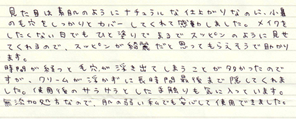 見た目は素肌のようにナチュラルな仕上がりなのに、小鼻
の毛穴をしっかりとカバーしてくれて感動しました。メイクを
したくない日でもひと塗りでまるでスッピンのように見せ
てくれるので、スッピンが綺麗だと思ってもらえそうで助かり
ます。
時間が経って毛穴が浮き出てしまうことが多かったので
すが、クリームが浮かずに長時間最後まで隠してくれまし
た。使用後のサラサラとした手触りも気に入っています。
無添加処方なので、肌の弱い私でも安心して使用できました。